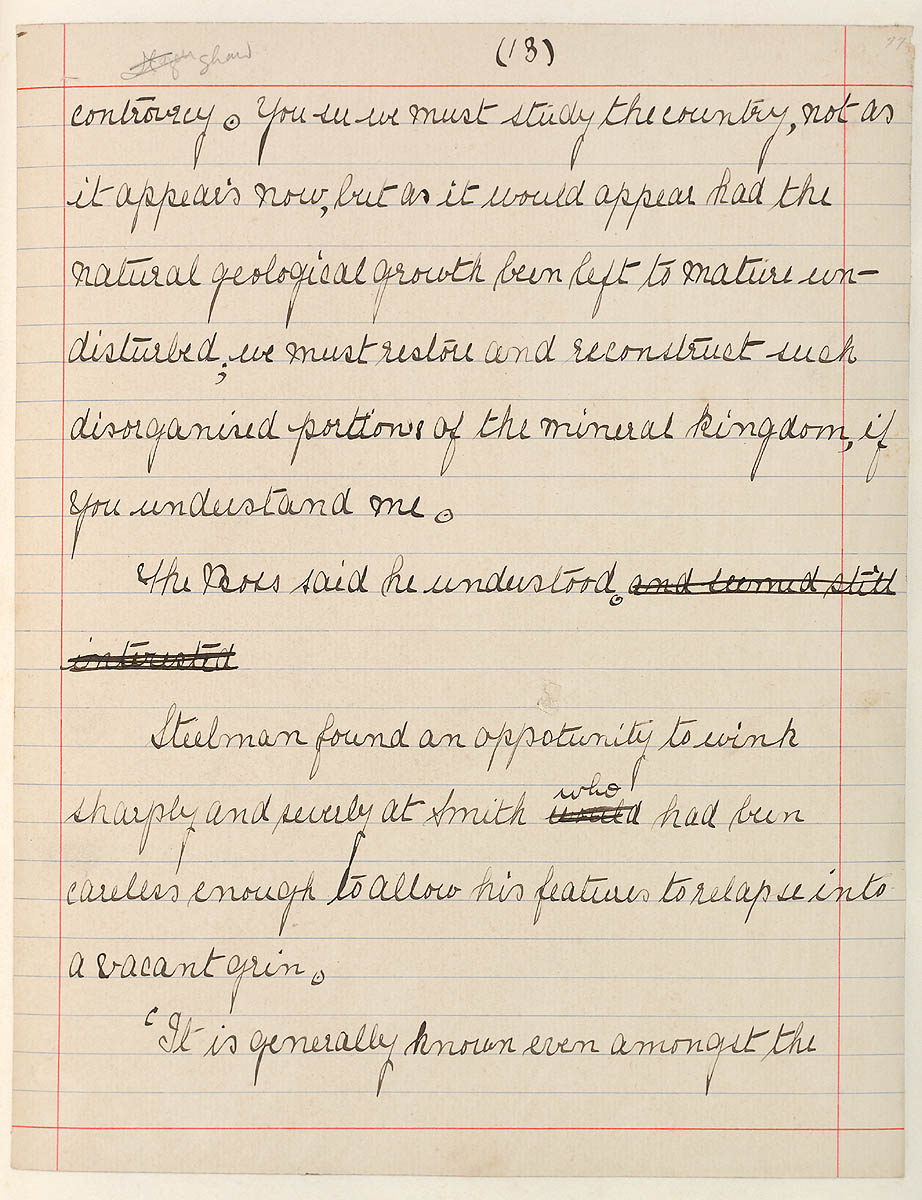 (13)
77
controvrcy. You see we must study the country, not as
it appears now, but as it would appear had the
natural geological growth been left to mature un-
disturbed; we must restore and reconstruct such
disorganised portions of the mineral kingdom, if
you understand me.
The Boss said he understood. and seemed still
interested
Steelman found an oppotunity to wink
who
sharply and severly at Smith would had been
careless enough to allow his features to relapse into
a vacant grin.
'It is generally known even amongst the